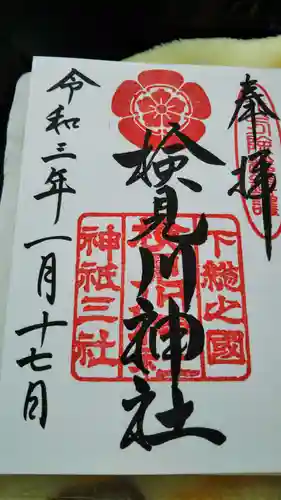 奉拝
下総之國
検見川神社
神祇三社
令和三年一月十七日